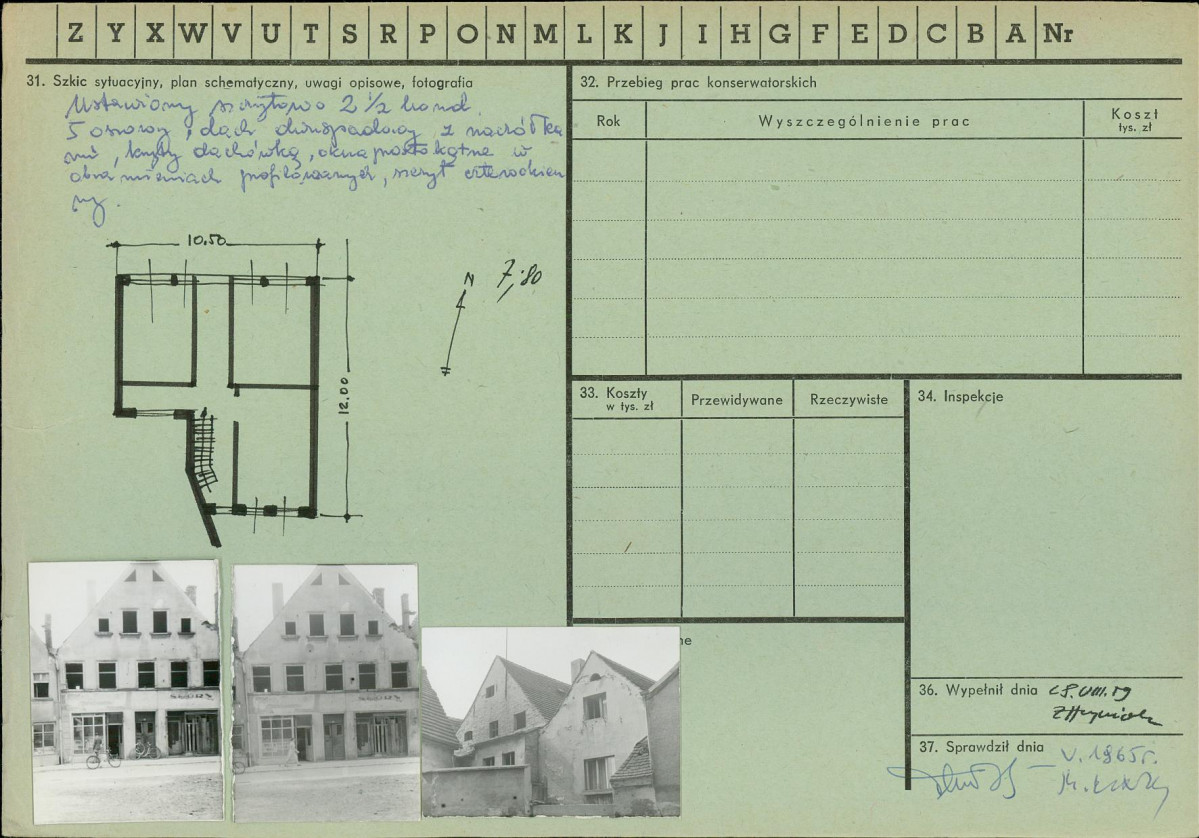 Z Y X W V U T S R P O N M L K J I H G F E D C B A Nr
31. Szkic sytuacyjny, plan schematyczny, uwagi opisowe, fotografia
Ustawiony szczytowo 2 1/2 kond.
5 osiowy, dach dwuspadowy, z naczółka
mi, kryty dachówką, okna prostokątne w
obramieniach profilowanych, szczyt
ny.
10.50
12.00
N
7,80
32. Przebieg prac konserwatorskich
Rok
Wyszczególnienie prac
Koszt
tys. zł
33. Koszty
w tys. zł
Przewidywane
Rzeczywiste
34. Inspekcje
ne
36. Wypełnił dnia
VIII.59
37. Sprawdził dnia
V. 1965 r.